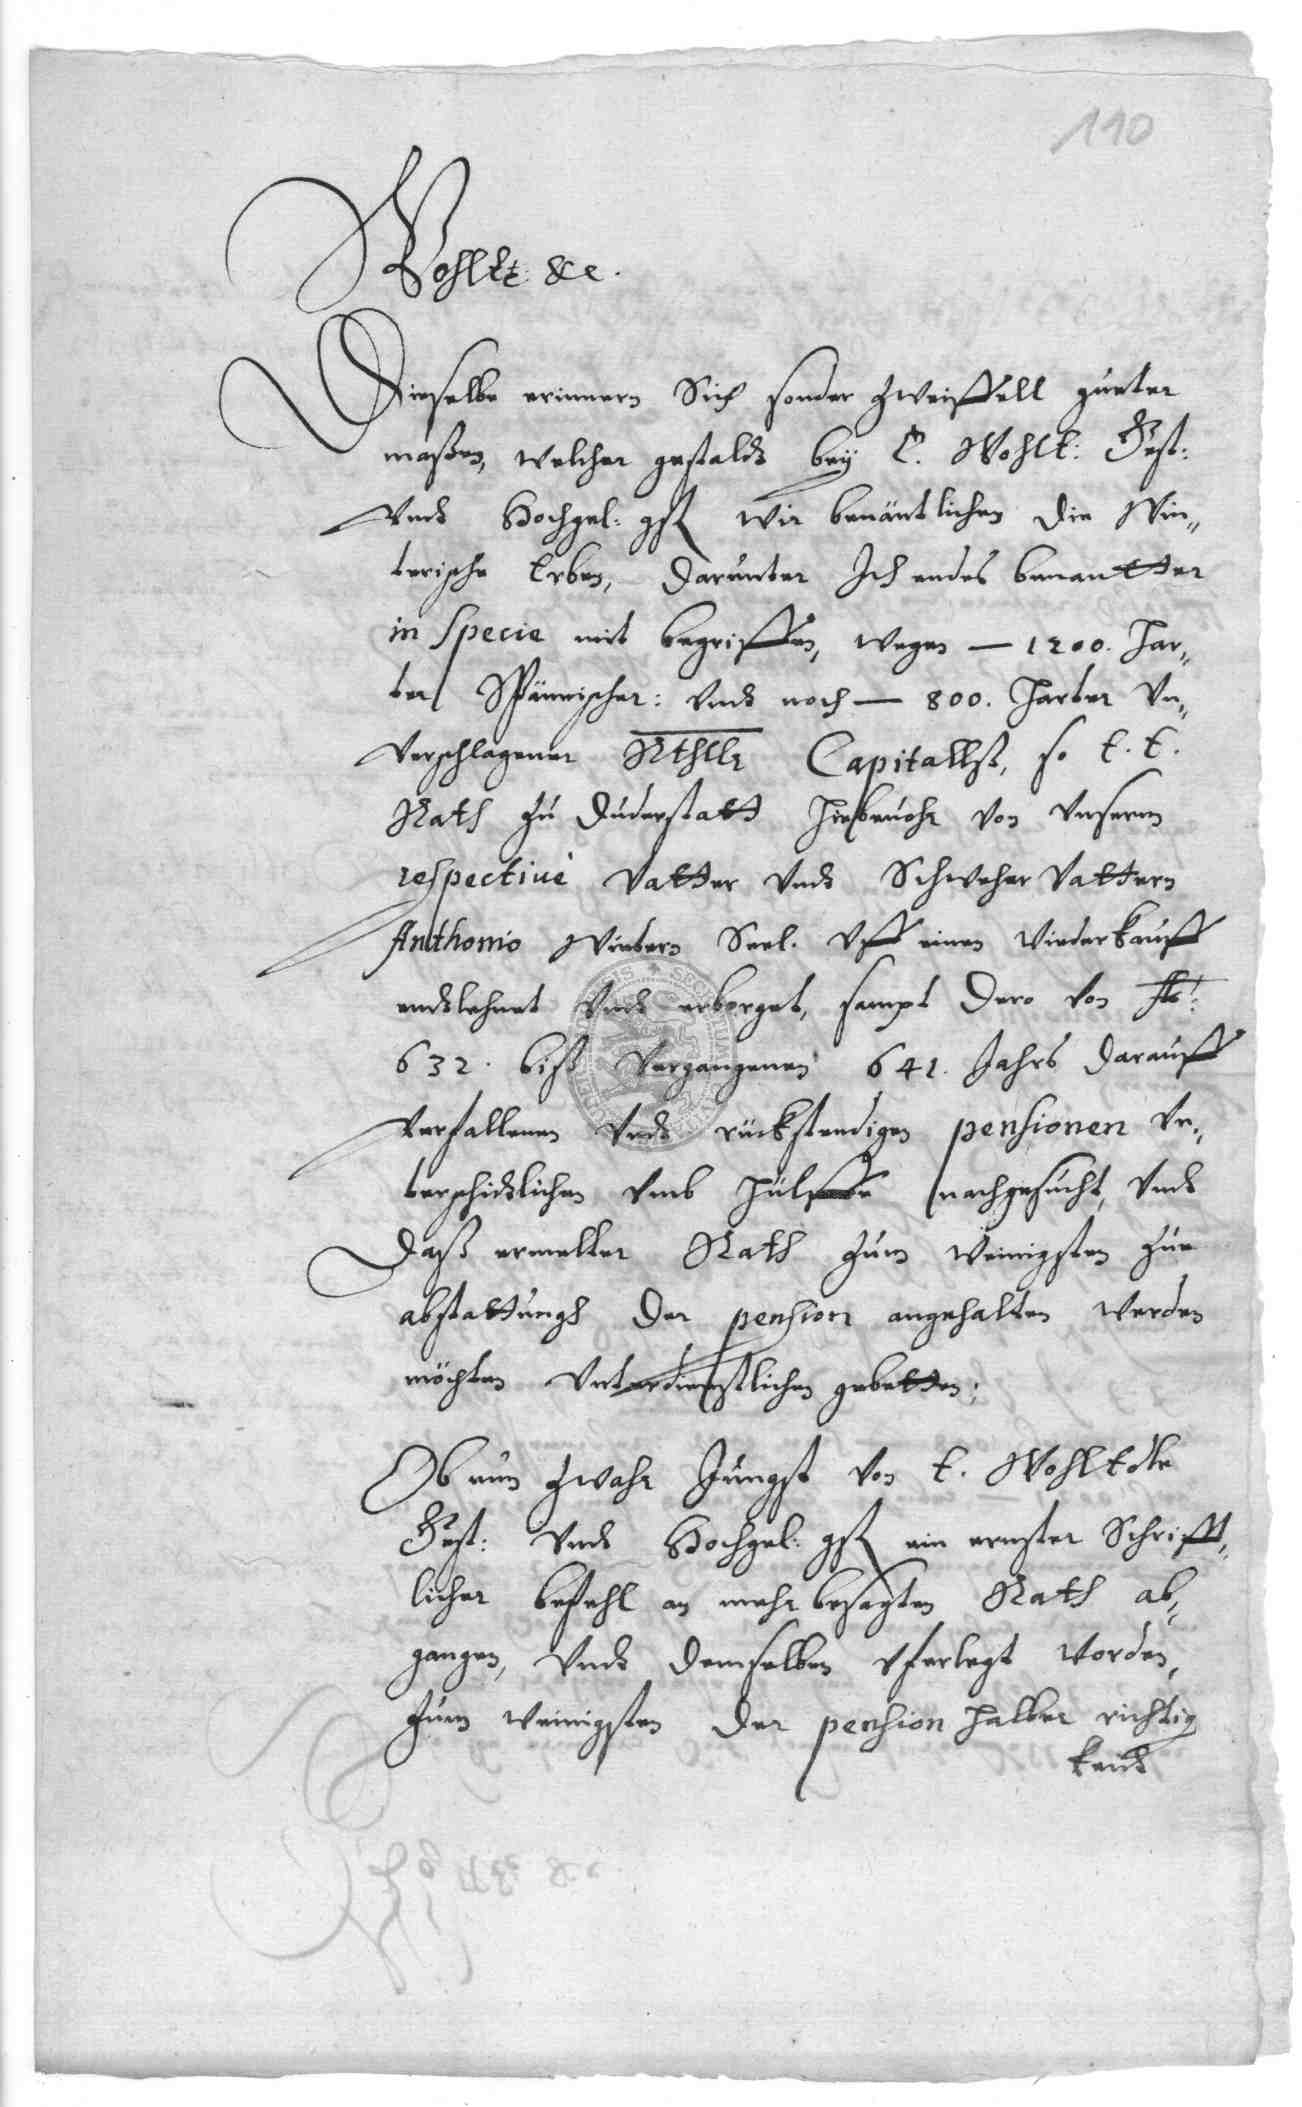 110
WohlEt: &c.
Dieselbe erinnern Sich sonder zweiffell gueter
maßen, welcher gestaldt beÿ E. WohlE: Vest:
vndt Hochgel: gst wir benäntlichen die Win„
terische Erben, darunter Ich endes benantter
in specie mit begriffen, wegen — 1200. har„
ter Spännischer: vndt noch — 800. harter vn„
verschlagener Rthllr Capitallß, so E. E.
Rath zu Duderstatt hiebeuohr von vnserm
respectiuè Vatter vndt Schweher Vattern
Anthonio Wintern Seel. vff einen wiederkauff
endtlehnet vndt erborget, sampt dero von
632. biß vergangenen 641. Jahrs darauff
verfallenen vndt rückstendigen pensionen vn„
terschidtlichen vmb hülffe nachgesucht, vndt
daß ermelter Rath zum weinigsten zue
abstattungh der pension angehalten werden
möchten vnterdienstlichen gebetten;
Ob nun zwahr Jüngst von E. WohlEdle
Vest: vndt Hochgel: gst ein ernster Schrifft„
licher befehl an mehr besagten Rath ab„
gangen, vndt demselben vferlegt worden,
zum weinigsten der pension halber richtig
keidt